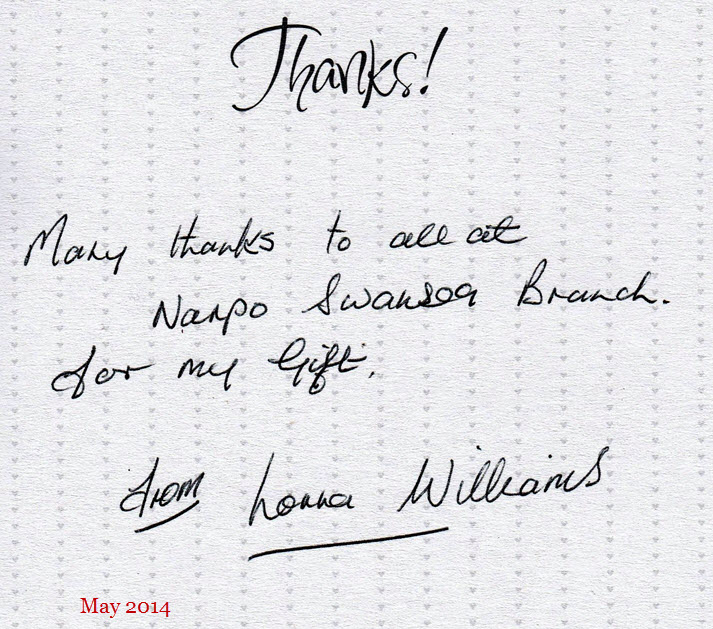 Thanks!
Many thanks to all at
Narpo Swansea Branch.
for my Gift.
from Lorna Williams
May 2014